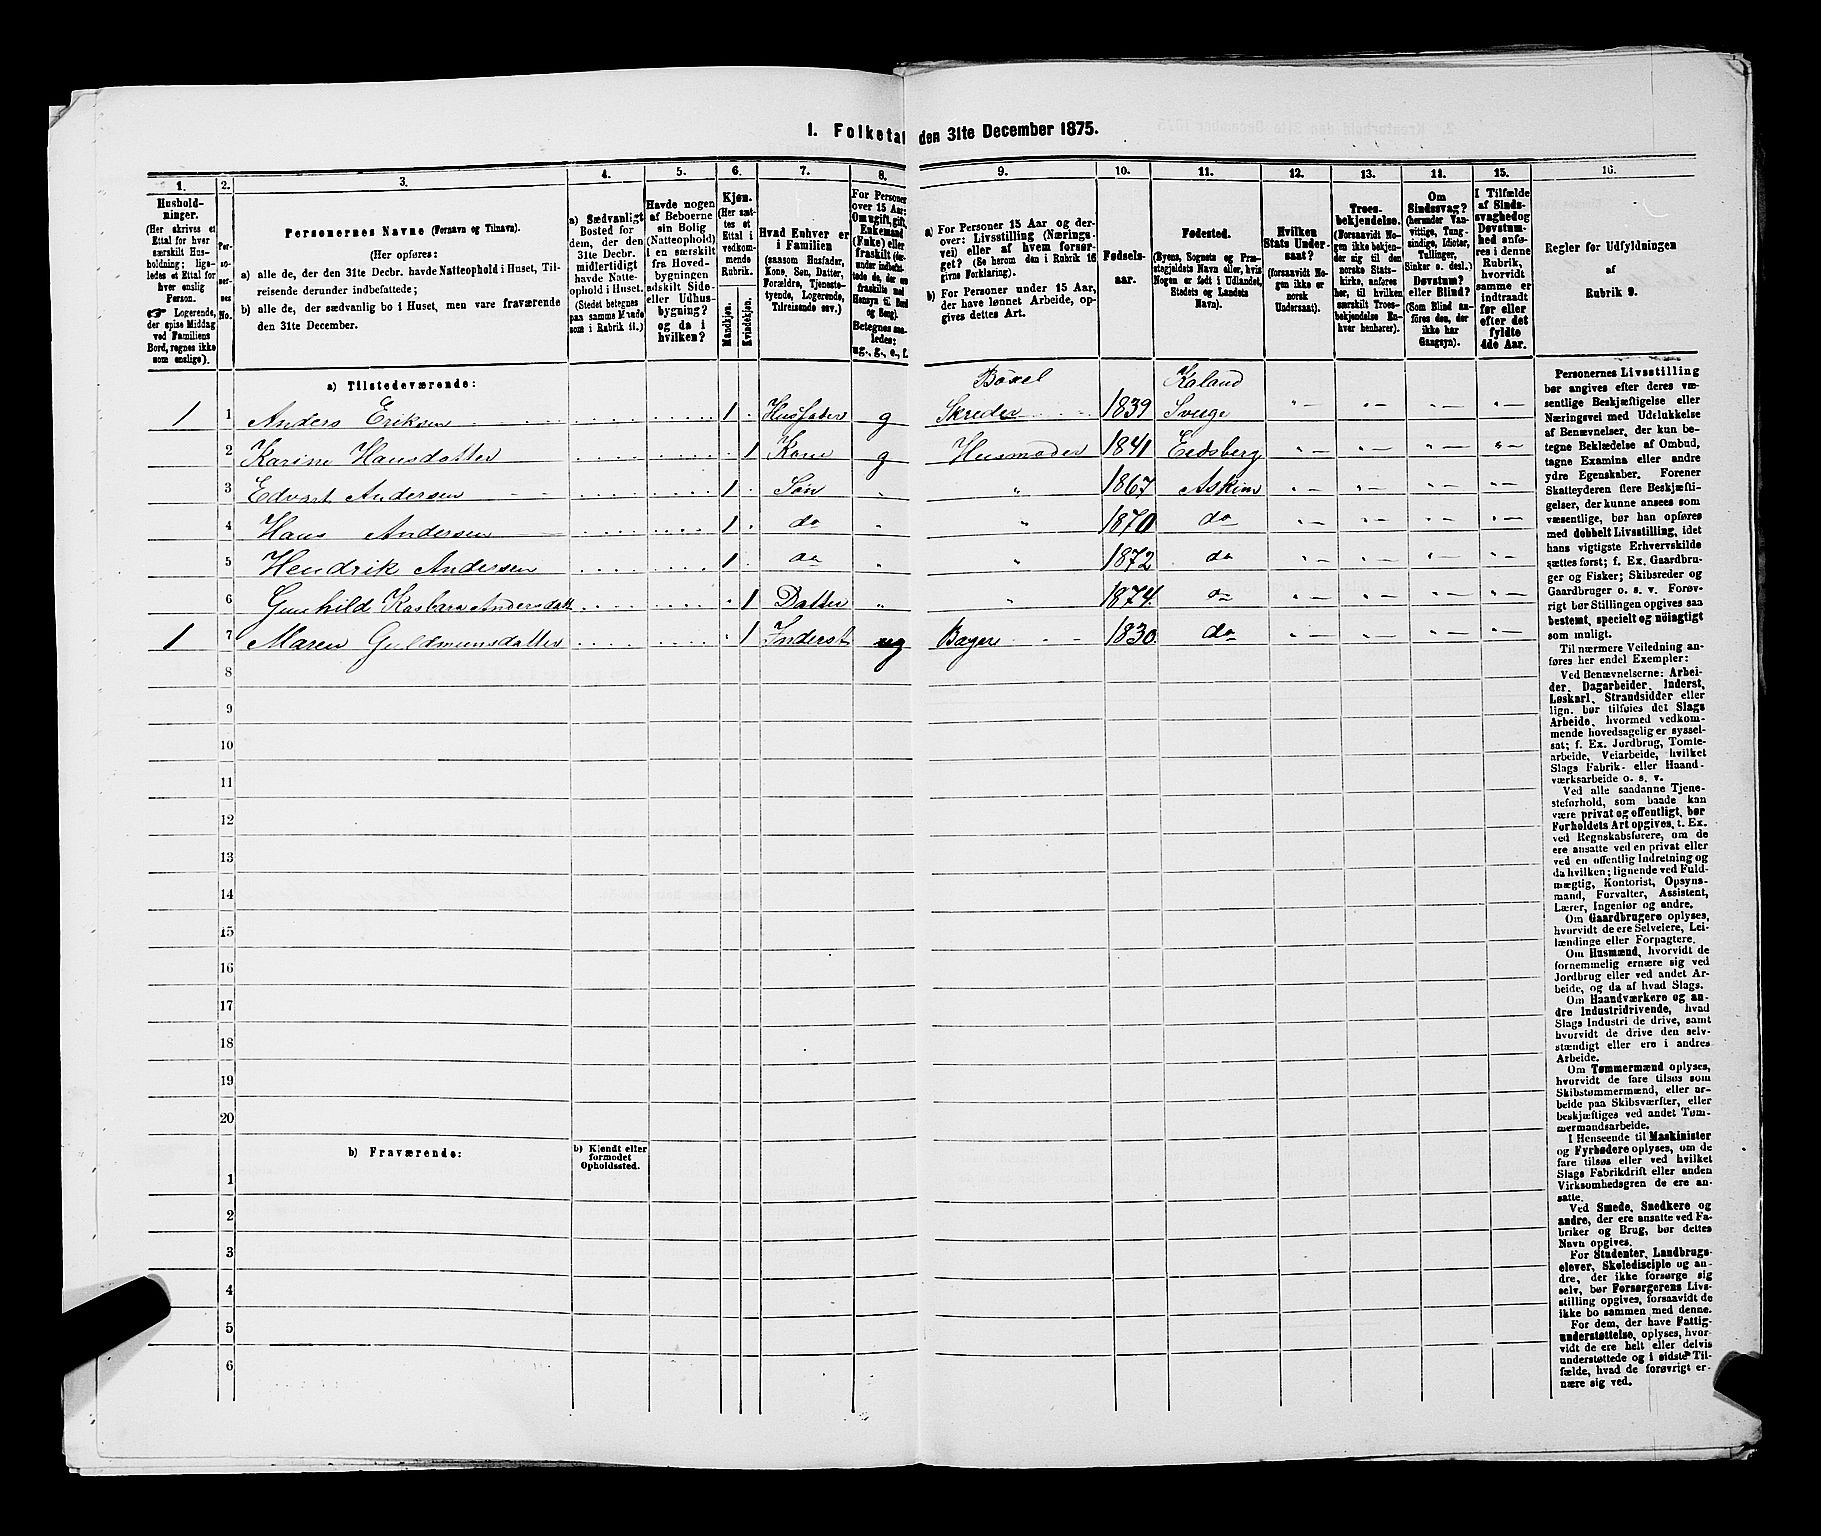 1. Folketal den 31te December 1875.
1. 2. 3. 4. 5. 6. 7. 8. 9. 10. 11. 12. 13. 14. 15. 16.
Husholdninger.
(Her skrives et
Ettal for hver
særskilt Husholdning;
ligeledes et Ettal for
hver enslig
Person.
Logerende,
der spise Middag
ved Familiens
Bord, regnes ikke
som enslige).
Personernes No.
Personernes Navne (Fornavn og Tilnavn).
(Her opføres:
a) alle de, der den 31te Decbr. havde Natteophold i Huset, Tilreisende derunder indbefattede;
b) alle de, der sædvanlig bo i Huset, men vare fraværende
den 31te December.
a) Sædvanligt
Bosted for
dem, der den
31te Decbr.
midlertidigt
havde Natteophold i Huset.
(Stedet betegnes
paa samme Maade
som i Rubrik 11.)
Havde nogen
af Beboerne
sin Bolig
(Natteophold)
i en særskilt
fra Hovedbygningen
adskilt Side-
eller Udhusbygning?
og da i
hvilken?
Kjøn.
(Her sættes et
Ettal i
vedkommende
Rubrik.
Mandkjøn.
Kvindekjøn.
Hvad Enhver er
i Familien
(saasom Husfader,
Kone, Søn, Datter,
Forældre, Tjenestetyende, Logerende,
Tilreisende osv.)
For Personer
over 15 Aar:
Om ugift, gift,
Enkemand
(Enke) eller
fraskilt
Betegnes saaledes:
ug., g., e., f.
a) For Personer 15 Aar og derover: Livsstilling (Næringsvei) eller af hvem forsørget? (Se herom den i Rubrik 16
givne Forklaring).
b) For Personer under 15 Aar,
der have lønnet Arbeide, opgives dettes Art.
Fødselsaar.
Fødested.
(Byens, Sognets og Præstegjeldets Navn eller, hvis
Nogen er født i Udlandet,
Stedets og Landets
Navn).
Hvilken
Stats Undersaat?
(forsaavidt Nogen ikke er
norsk
Undersaat).
Troesbekjendelse.
(Forsaavidt Nogen ikke bekjender sig til den
norske Statskirke, anføres
her, til hvilken
særskilt Troesbekjendelse Enhver henhører).
Om
Sindssvag?
(herunder Vanvittige, Tungsindige, Idioter,
Tullinger,
Sinker o. desl.)
Døvstum?
eller Blind?
(Som Blind anføres den, der
ikke har
Gangsyn).
I Tilfælde
af Sindssvaghed og
Døvstumhed anføres i denne
Rubrik,
hvorvidt
samme er
indtraadt
før eller
efter det
fyldte
4de Aar.
Regler for Udfyldningen
af
Rubrik 9.
a) Tilstedeværende:
Kaland
1 1 Anders Eriksen 1 Husfader g Skreder 1839 Sverge
2 Karine Hansdatter 1 Kone g Husmoder 1841 Eidsberg
3 Edvart Andersen 1 Søn 1867 Askim
4 Hans Andersen 1 do 1870 do
5 Hendrik Andersen 1 do 1872 do
6 Gunhild Andersdatt 1 Datter 1874 do
1 7 Maren Guldmunsdatter 1 Inderst ug 1830 do
8
9
10
11
12
13
14
15
16
17
18
19
20
b) Fraværende:
b) Kjendt eller
formodet
Opholdssted.
1
2
3
4
5
6
Personernes Livsstilling
bør angives efter deres væsentlige Beskjæftigelse eller
Næringsvei med Udelukkelse
af Benævnelser, der kun betegne Beklædelse af Ombud,
tagne Examina eller andre
ydre Egenskaber. Forener
Skatteyderen flere Beskjæftigelser, der kunne ansees som
væsentlige, bør han opføres
med dobbelt Livsstilling, idet
hans vigtigste Erhvervskilde
sættes først; f. Ex. Gaardbruger og Fisker; Skibsreder og
Gaardbruger o. s. v. Forøvrigt bør Stillingen opgives saa
bestemt, specielt og nöiagtigt
som muligt.
Til nærmere Veiledning anføres her endel Exempler:
Ved Benævnelserne: Arbeider, Dagarbeider, Inderst,
Løskarl, Strandsidder eller
lign. bør tilføies det Slags
Arbeide, hvormed vedkommende hovedsagelig er sysselsat; f. Ex. Jordbrug, Tomtearbeide, Veiarbeide, hvilket
Slags Fabrik- eller Haandværksarbeide o. s. v.
Ved alle saadanne Tjenesteforhold, som baade kan
være privat og offentligt, bør
Forholdets Art opgives, t. Ex.
ved Regnskabsførere, om de
ere ansatte ved en privat eller
ved en offentlig Indretning og
da hvilken; lignende ved Fuldmægtig, Kontorist, Opsynsmand, Forvalter, Assistent,
Lærer, Ingeniør og andre.
Om Gaardbrugere oplyses,
hvorvidt de ere Selveiere, Leilændinge eller Forpagtere.
Om Husmænd, hvorvidt de
fornemmelig ernære sig ved
Jordbrug eller ved andet Arbeide, og da af hvad Slags.
Om Haandværkere og andre Industridrivende, hvad
Slags Industri de drive, samt
hvorvidt de drive den selvstændigt eller ere i andres
Arbeide.
Om Tømmermænd oplyses,
hvorvidt de fare tilsøs som
Skibstømmermænd, eller arbeide paa Skibsværfter, eller
beskjæftiges ved andet Tømmermandsarbeide.
I Henseende til Maskinister
og Fyrbødere oplyses, om de
fare tilsøs eller ved hvilket
Slags Fabrikdrift eller anden
Virksomhedsgren de ere ansatte.
Ved Smede, Snedkere og
andre, der ere ansatte ved Fabriker og Brug, bør dettes
Navn opgives.
For Studenter, Landbrugselever, Skoledisciple og andre, der ikke forsørge sig
selv, bør Forsørgerens Livsstilling opgives, forsaavidt de
ikke bo sammen med denne.
For dem, der have Fattigunderstøttelse, oplyses, hvorvidt de ere helt eller delvis
understøttede og i sidste Tilfælde, hvad de forøvrigt ernære sig ved.